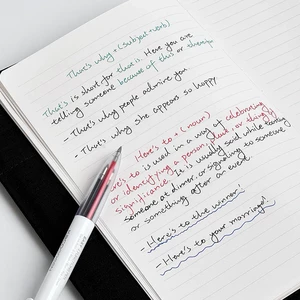 That's why + (subject + verb)
That's is short for that is. Here you are
telling someone because of this or therefore
- That's why people admire you
- That's why she appears so happy
Here's to + (noun)
Here's to is used in a way of celebrating
or identifying a person, idea, or thing of
significance. It is usually said while toasting
someone at dinner, or signaling to someone
or something after an event.
- Here's to the winner!
- Here's to your marriage!